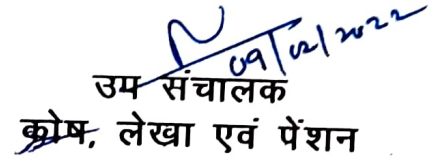 09/02/2022
उप संचालक
कोष, लेखा एवं पेंशन